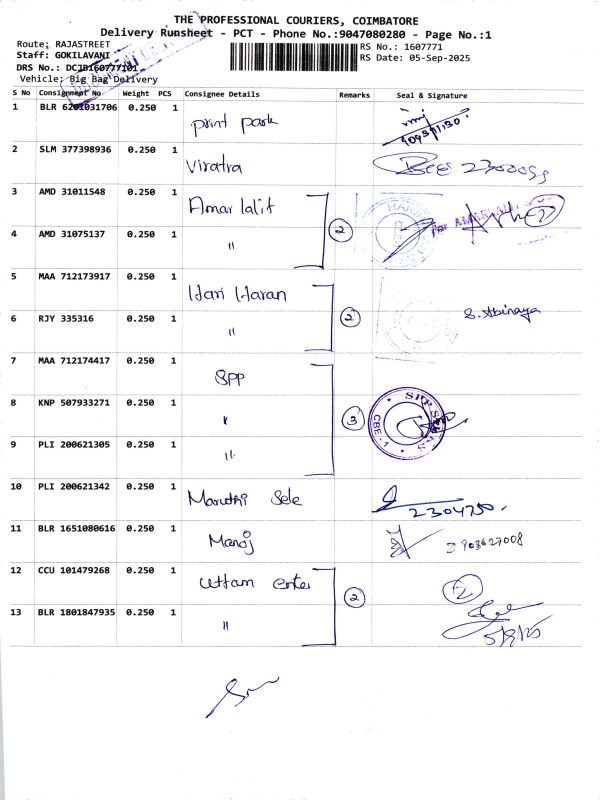 THE PROFESSIONAL COURIERS, COIMBATORE
Delivery Runsheet - PCT - Phone No.:9047080280 - Page No.:1
Route: RAJASTREET
Staff: GOKILAVANI
RS No.: 1607771
RS Date: 05-Sep-2025
DRS No.: DCJB160777101
Vehicle: Big Bag Delivery
S No Consignment No Weight PCS Consignee Details Remarks Seal & Signature
1 BLR 6201031706 0.250 1 print park
2 SLM 377398936 0.250 1 Viratra
3 AMD 31011548 0.250 1 Amar lalit
4 AMD 31075137 0.250 1 " 2
5 MAA 712173917 0.250 1 Hari Haran
6 RJY 335316 0.250 1 " 2 S. Abinaya
7 MAA 712174417 0.250 1 SPP
8 KNP 507933271 0.250 1 " 3 CBE-1
9 PLI 200621305 0.250 1 "
10 PLI 200621342 0.250 1 Maruthi Sele 2304750.
11 BLR 1651080616 0.250 1 Manoj
12 CCU 101479268 0.250 1 Uttam enter 2 2
13 BLR 1801847935 0.250 1 " 5/9/25